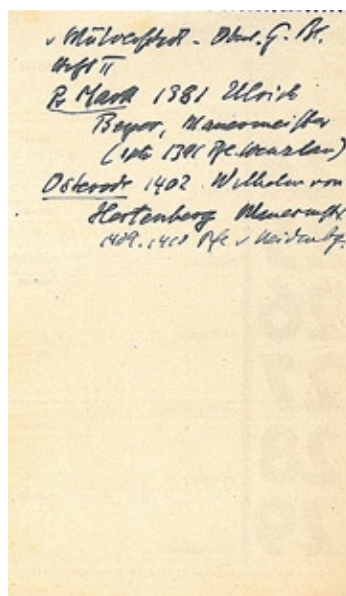 v Mülverstedt - Oberl. G. Bl.
Heft II
Pr. Mark 1381 Ulrich
Beyer, Mauermeister
(1391 Pfl.
Osterode 1402. Wilhelm von
Hertenberg Mauermstr.
1409. 1410 Pfl. v
26
27
28
29